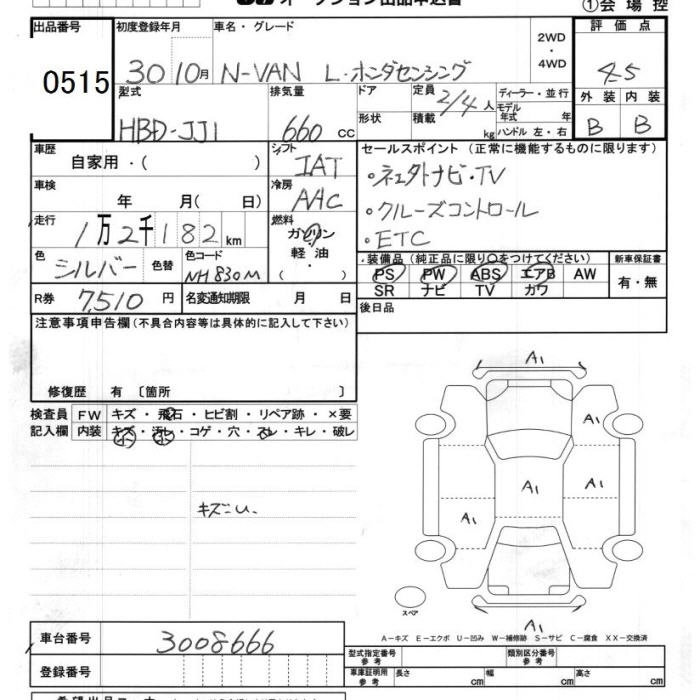 ①会場控
出品番号 初度登録年月 車名・グレード 2WD・4WD 評価点
0515 30 10月 N-VAN L・ホンダセンシング 4.5
型式 排気量 ドア 定員 2/4人 ディーラー・並行 外装 内装
HBD-JJ1 660cc 形状 積載 kg モデル年式 年 ハンドル 左・右 B B
車歴 自家用・( ) シフト IAT セールスポイント (正常に機能するものに限ります)
車検 年 月( 日) 冷房 AAC ・ネエタトナビ・TV
走行 1万2千182km 燃料 ガソリン・軽油・( ) ・クルーズコントロール
・ETC
色 シルバー 色替 色コード NH830M 装備品 (純正品に限り○をつけてください) 新車保証書
PS PW ABS エアB AW 有・無
SR ナビ TV カワ
R券 7,510円 名変通知期限 月 日 後日品
注意事項申告欄 (不具合内容等は具体的に記入して下さい)
修復歴 有 〔箇所 〕
検査員 FW キズ・飛石・ヒビ割・リペア跡・×要
記入欄 内装 キズ・汚レ・コゲ・穴・スレ・キレ・破レ
A1
A1
A1 A1
A1
A1
スペア
A−キズ E−エクボ U−凹み W−補修跡 S−サビ C−腐食 XX−交換済
車台番号 3008666 型式指定番号 参考 類別区分番号 参考
登録番号 車庫証明用 参考 長さ cm 幅 cm 高さ cm